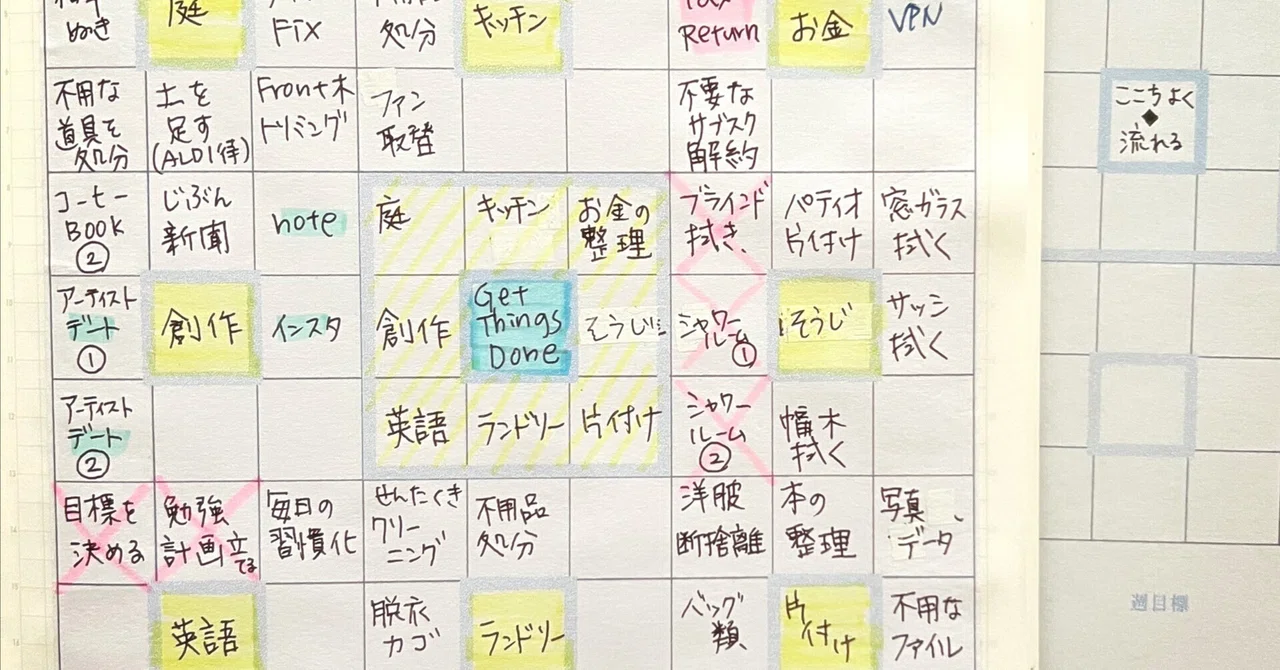 ぬき
庭
FIX
処分
キッチン
Return
お金
VPN
不用な
道具を
処分
土を
足す
(ALDI待)
Front木
トリミング
ファン
取替
不要な
サブスク
解約
ここちよく
◆
流れる
コーヒー
BOOK
②
じぶん
新聞
note
庭
キッチン
お金の
整理
ブラインド
拭き
パティオ
片付け
窓ガラス
拭く
アーティスト
デート
①
創作
インスタ
創作
Get
Things
Done
そうじ
シャワー
ルーム
①
そうじ
サッシ
拭く
アーティスト
デート
②
英語
ランドリー
片付け
シャワー
ルーム
②
幅木
拭く
目標を
決める
勉強
計画立
てる
毎日の
習慣化
せんたくき
クリー
ニング
不用品
処分
洋服
断捨離
本の
整理
写真
データ
英語
脱衣
カゴ
ランドリー
バッグ
類
片
付け
不用な
ファイル
週目標